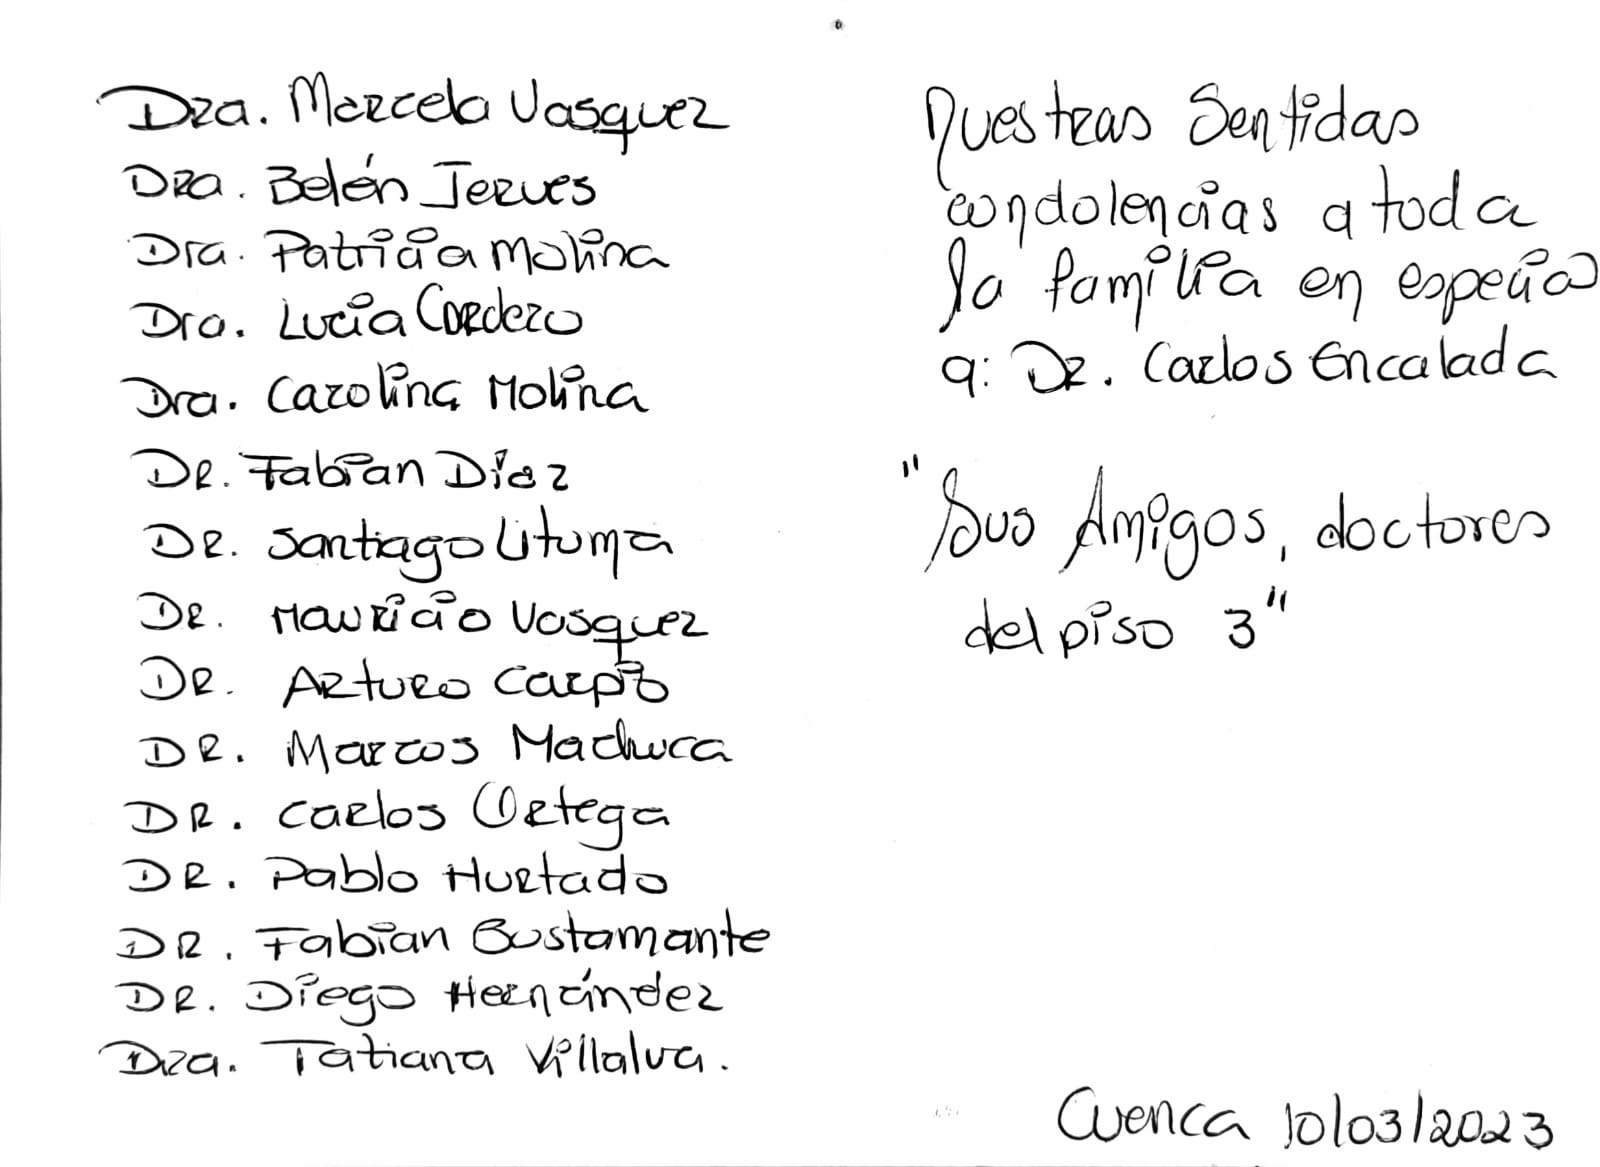 Dra. Marcela Vasquez
Dra. Belén Jerves
Dra. Patricia Molina
Dra. Lucia Cordero
Dra. Carolina Molina
DR. Fabian Díaz
DR. Santiago Utuma
DR. Mauricio Vasquez
DR. Arturo Carpio
DR. Marcos Machuca
DR. Carlos Ortega
DR. Pablo Hurtado
DR. Fabian Bustamante
DR. Diego Hernández
Dra. Tatiana Villalva.
Nuestras Sentidas
condolencias a toda
la familia en especial
a: Dr. Carlos Encalada
"Sus Amigos, doctores
del piso 3"
Cuenca 10/03/2023